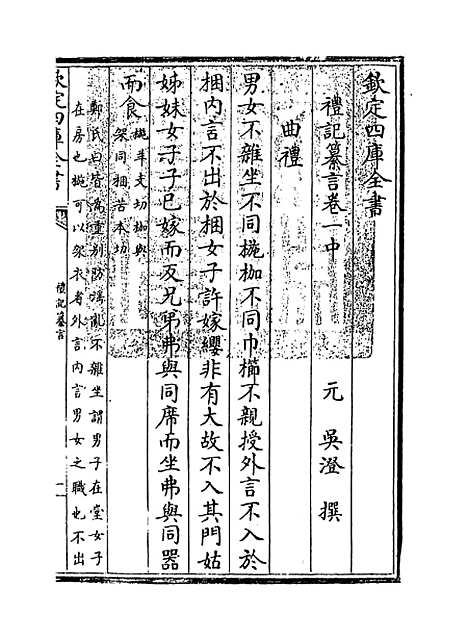 欽定四庫全書
禮記纂言卷一中
元　吳澄　撰
曲禮
男女不雜坐不同椸枷不同巾櫛不親授外言不入於
梱內言不出於梱女子許嫁纓非有大故不入其門姑
姊妹女子子已嫁而反兄弟弗與同席而坐弗與同器
而食
椸羊支切枷與
架同梱苦本切
鄭氏曰皆為重別防淫亂不雜坐謂男子在堂女子
在房也椸可以枷衣者外言內言男女之職也不出
欽定四庫全書
禮記纂言
一